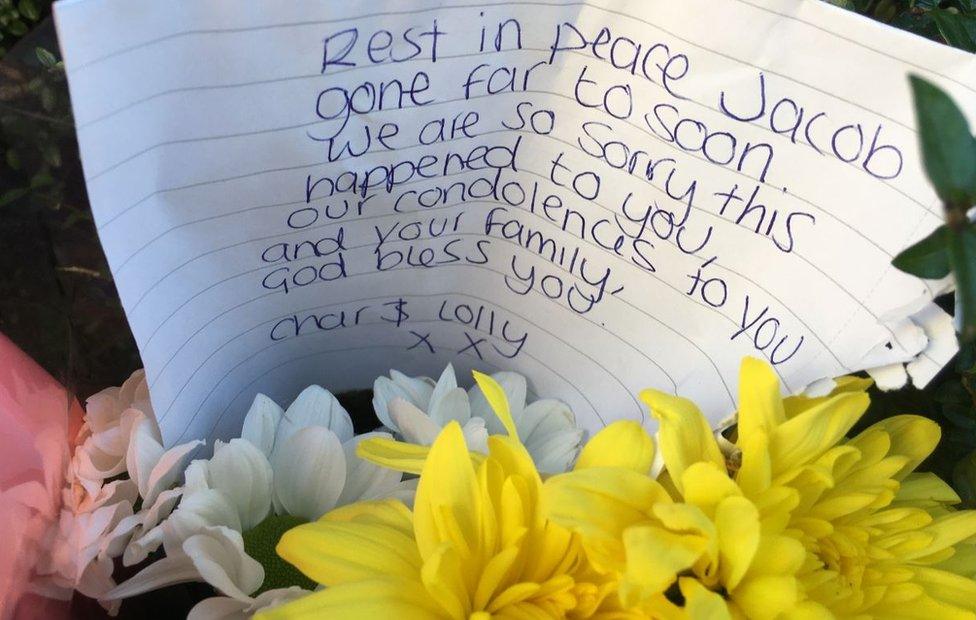 Rest in peace Jacob
gone far to soon.
We are so sorry this
happened to you,
our condolences to you
and your family,
God bless you.
char $ Lolly
x x